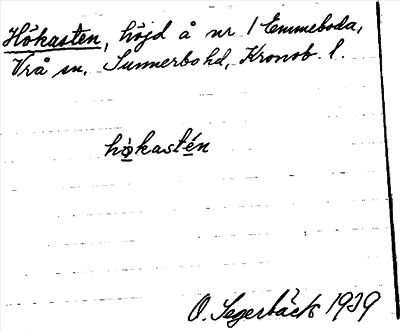 Hökasten, höjd å nr 1 Emmeboda,
Vrå sn, Sunnerbo hd, Kronob. l.
hökastén
O. Segerbäck 1939